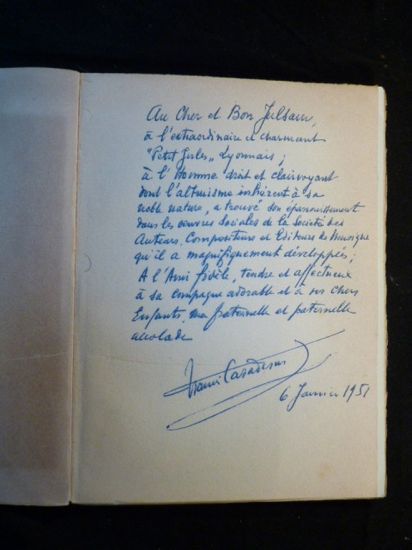 Au Cher et Bon Julsam,
à l'extraordinaire et charmant
"Petit Jules" Lyonnais;
à l'Homme droit et clairvoyant
dont l'altruisme inhérent à sa
noble nature, a trouvé son épanouissement
dans les œuvres sociales de la Société des
Auteurs, Compositeurs et Editeurs de Musique
qu'il a magnifiquement développées;
A l'Ami fidèle, tendre et affectueux
à sa compagne adorable et à ses chers
Enfants, ma fraternelle et paternelle
accolade
Francis Casadesus
6 Janvier 1951